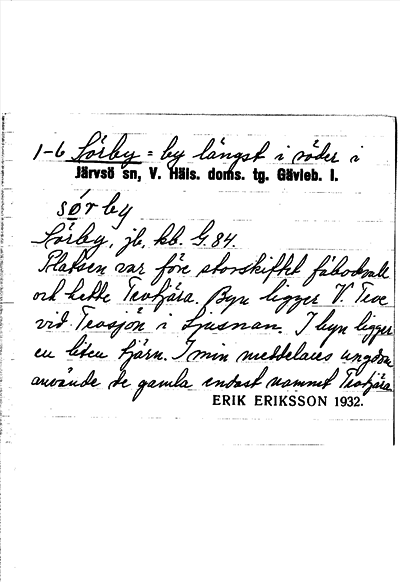 1-6 Sörby = by längst i söder i
Järvsö sn, V. Häls. doms. tg. Gävleb. l.
sǫ́rby
Sörby, jb, kb. G. 84.
Platsen var före storskiftet fäbodvall
och hette Teotjära. Byn ligger V. Teve
vid Teosjön i Ljusnan. I byn ligger
en liten tjärn. I min meddelares ungdom
använde de gamla endast namnet Teotjära
ERIK ERIKSSON 1932.